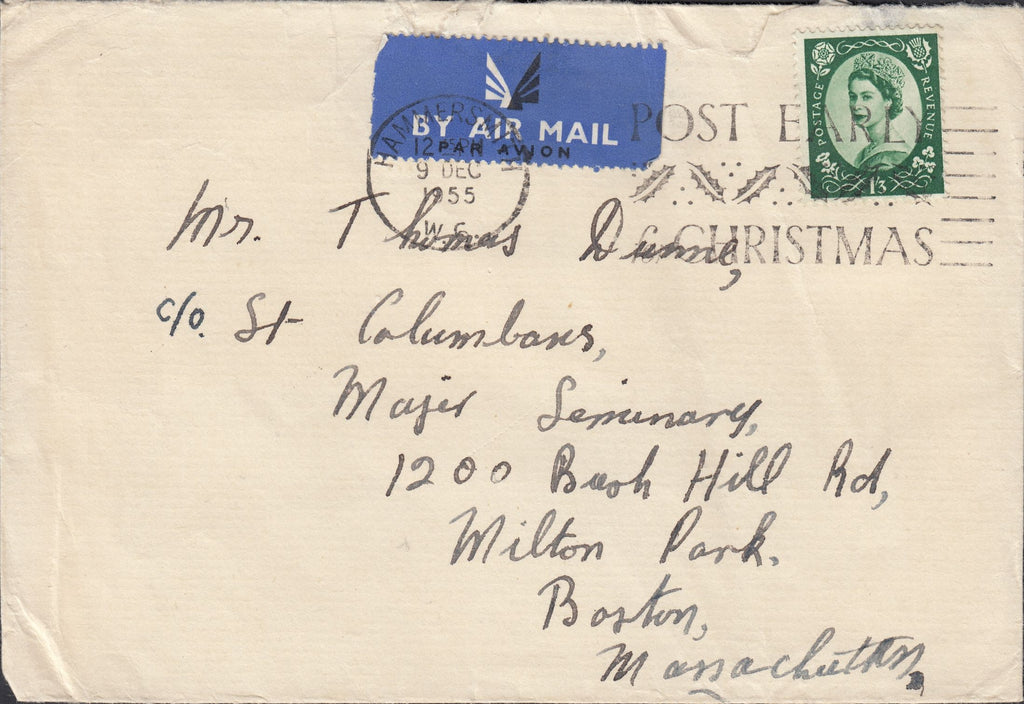 BY AIR MAIL
PAR AVION
POSTAGE REVENUE
1/3
HAMMERSMITH
12
9 DEC
1955
W.6.
POST EARLY
for CHRISTMAS
Mr. Thomas Dunne,
c/o. St Columbans,
Major Seminary,
1200 Bush Hill Rd,
Milton Park.
Boston,
Massachuttes.